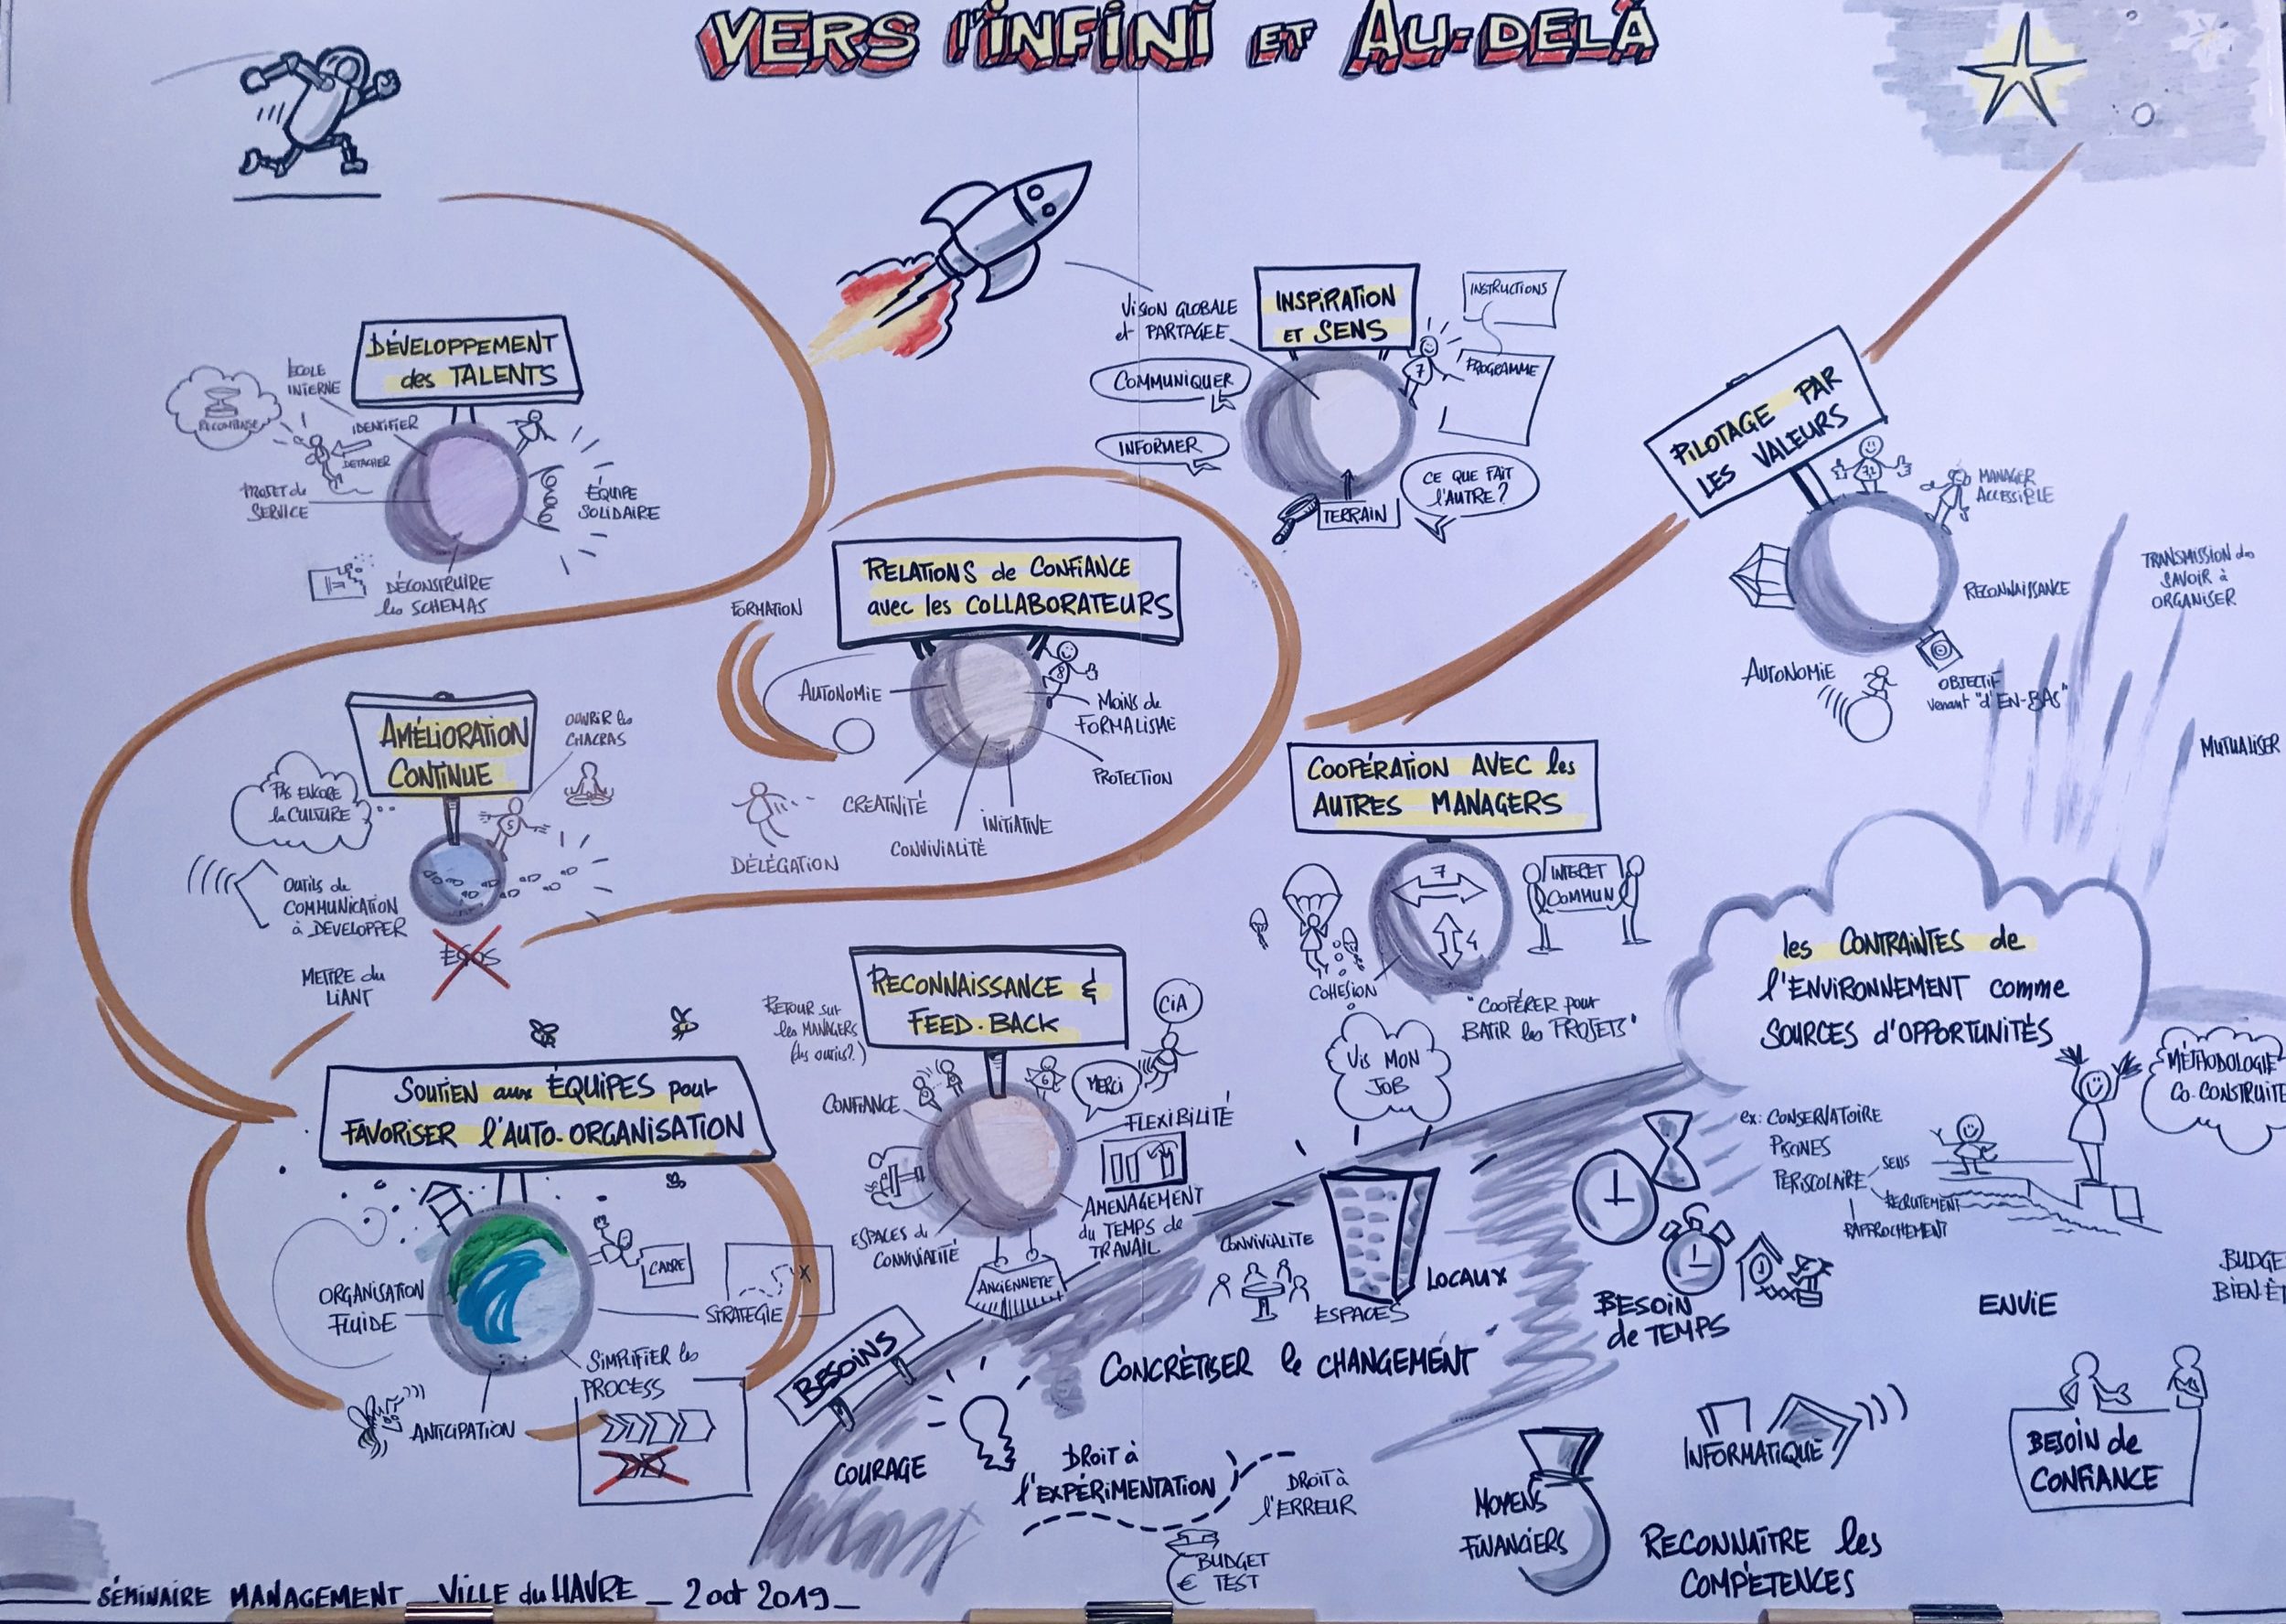 VERS l'iNFiNi ET AU-DELÀ
DÉVELOPPEMENT
des TALENTS
ÉCOLE
INTERNE
IDENTIFIER
RÉCOMPENSE
DETACHER
PROJET de
SERVICE
ÉQUIPE
SOLIDAIRE
DÉCONSTRUIRE
les SCHEMAS
VISION GLOBALE
et PARTAGEE
INSPIRATION
ET SENS
INSTRUCTIONS
7
PROGRAMME
COMMUNIQUER
INFORMER
CE QUE FAIT
l'AUTRE?
TERRAIN
PILOTAGE PAR
LES VALEURS
MANAGER
ACCESSIBLE
RECONNAISSANCE
AUTONOMIE
OBJECTIF
venant "d'EN-BAS"
TRANSMISSION du
SAVOIR à
ORGANISER
MUTUALISER
RELATIONS de CONFIANCE
avec les COLLABORATEURS
FORMATION
AUTONOMIE
8
MOINS de
FORMALISME
PROTECTION
CREATIVITÉ
INITIATIVE
CONVIVIALITÉ
DÉLÉGATION
AMÉLIORATION
CONTINUE
OUVRIR les
CHACRAS
PAS ENCORE
la CULTURE
5
OUTILS de
COMMUNICATION
à DEVELOPPER
EGOS
METTRE du
LIANT
COOPÉRATION AVEC les
AUTRES MANAGERS
7
4
INTERET
COMMUN
COHESION
"COOPÉRER pour
BATIR les PROJETS"
VIS MON
JOB
RECONNAISSANCE &
FEED-BACK
RETOUR sur
les MANAGERS
(des outils?)
CIA
6
MERCI
CONFIANCE
FLEXIBILITÉ
AMENAGEMENT
du TEMPS de
TRAVAIL
ESPACES de
CONVIVIALITÉ
ANCIENNETÉ
SOUTIEN aux ÉQUIPES pour
FAVORISER l'AUTO-ORGANISATION
CADRE
STRATEGIE
ORGANISATION
FLUIDE
SIMPLIFIER les
PROCESS
ANTICIPATION
les CONTRAINTES de
l'ENVIRONNEMENT comme
SOURCES d'OPPORTUNITÉS
METHODOLOGIE
CO-CONSTRUITE
ex: CONSERVATOIRE
PISCINES
PERISCOLAIRE
SENS
RECRUTEMENT
RAPPROCHEMENT
BESOINS
CONVIVIALITE
ESPACES
LOCAUX
CONCRÉTISER le CHANGEMENT
BESOIN
de TEMPS
ENVIE
BUDGE
BIEN-ÊT
COURAGE
DROIT à
l'EXPÉRIMENTATION
DROIT à
l'ERREUR
BUDGET
€ TEST
MOYENS
FINANCIERS
INFORMATIQUE
RECONNAÎTRE les
COMPÉTENCES
BESOIN de
CONFIANCE
SÉMINAIRE MANAGEMENT _ VILLE du HAVRE _ 2 oct 2019 _